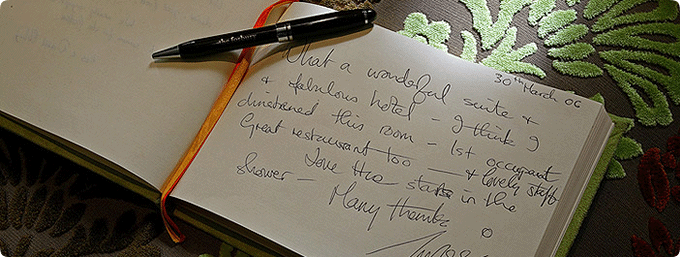 the forbury
30th March 06
What a wonderful suite &
& fabulous hotel - I think I
christened this room - 1st occupant
Great restaurant too — & lovely staff
Love the stars in the
shower —
Many thanks